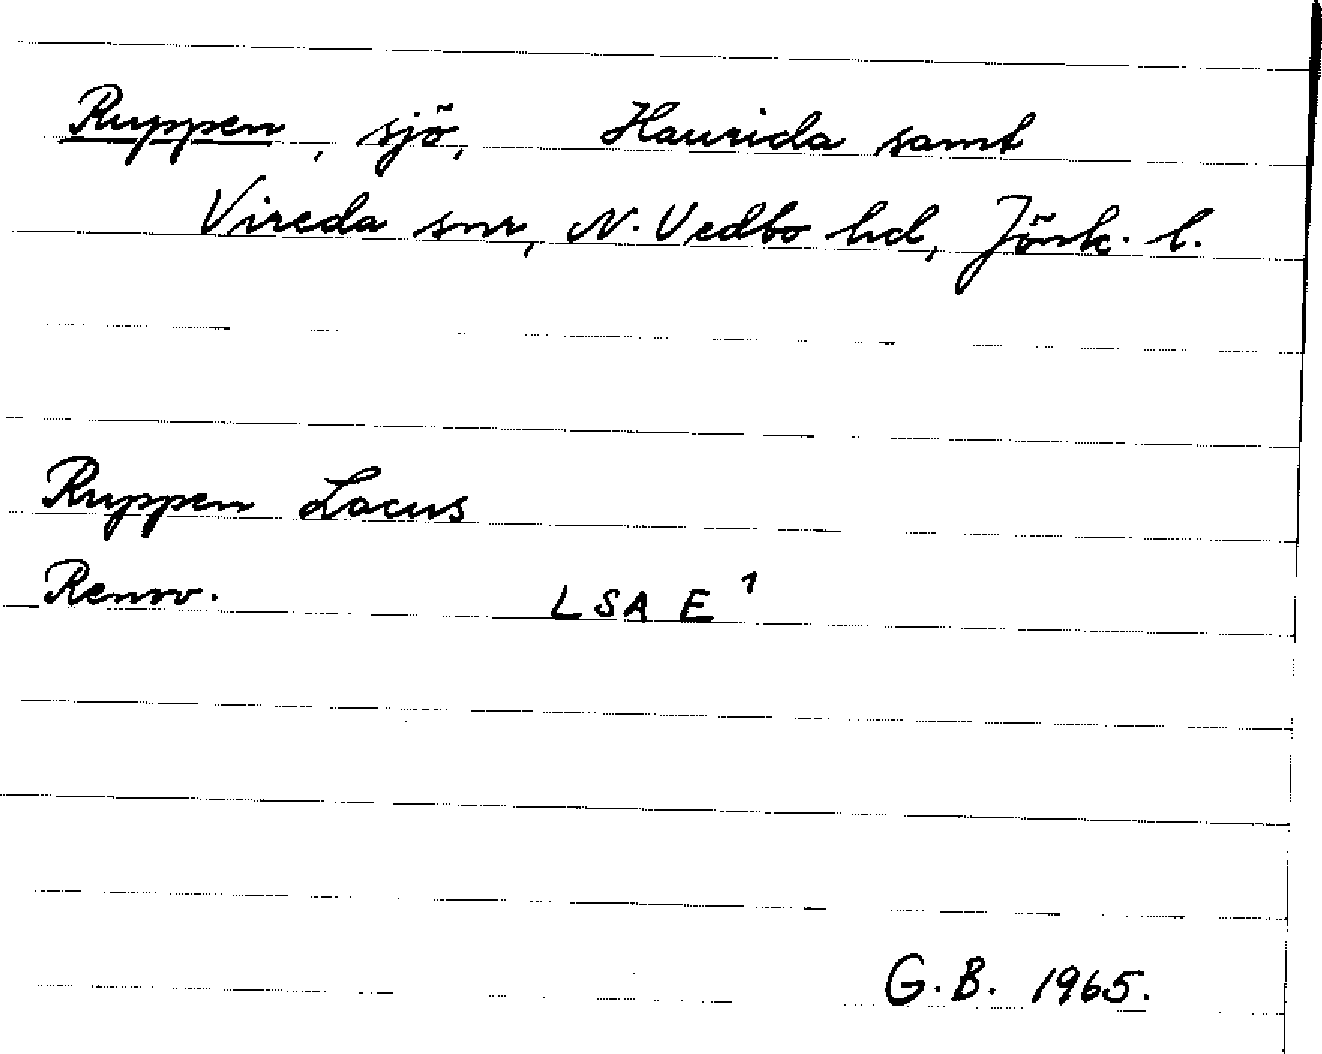 Ruppen, sjö, Haurida samt
Vireda snr, N. Vedbo hd, Jönk. l.
Ruppen Lacus
Renov. LSA E¹
G.B. 1965.